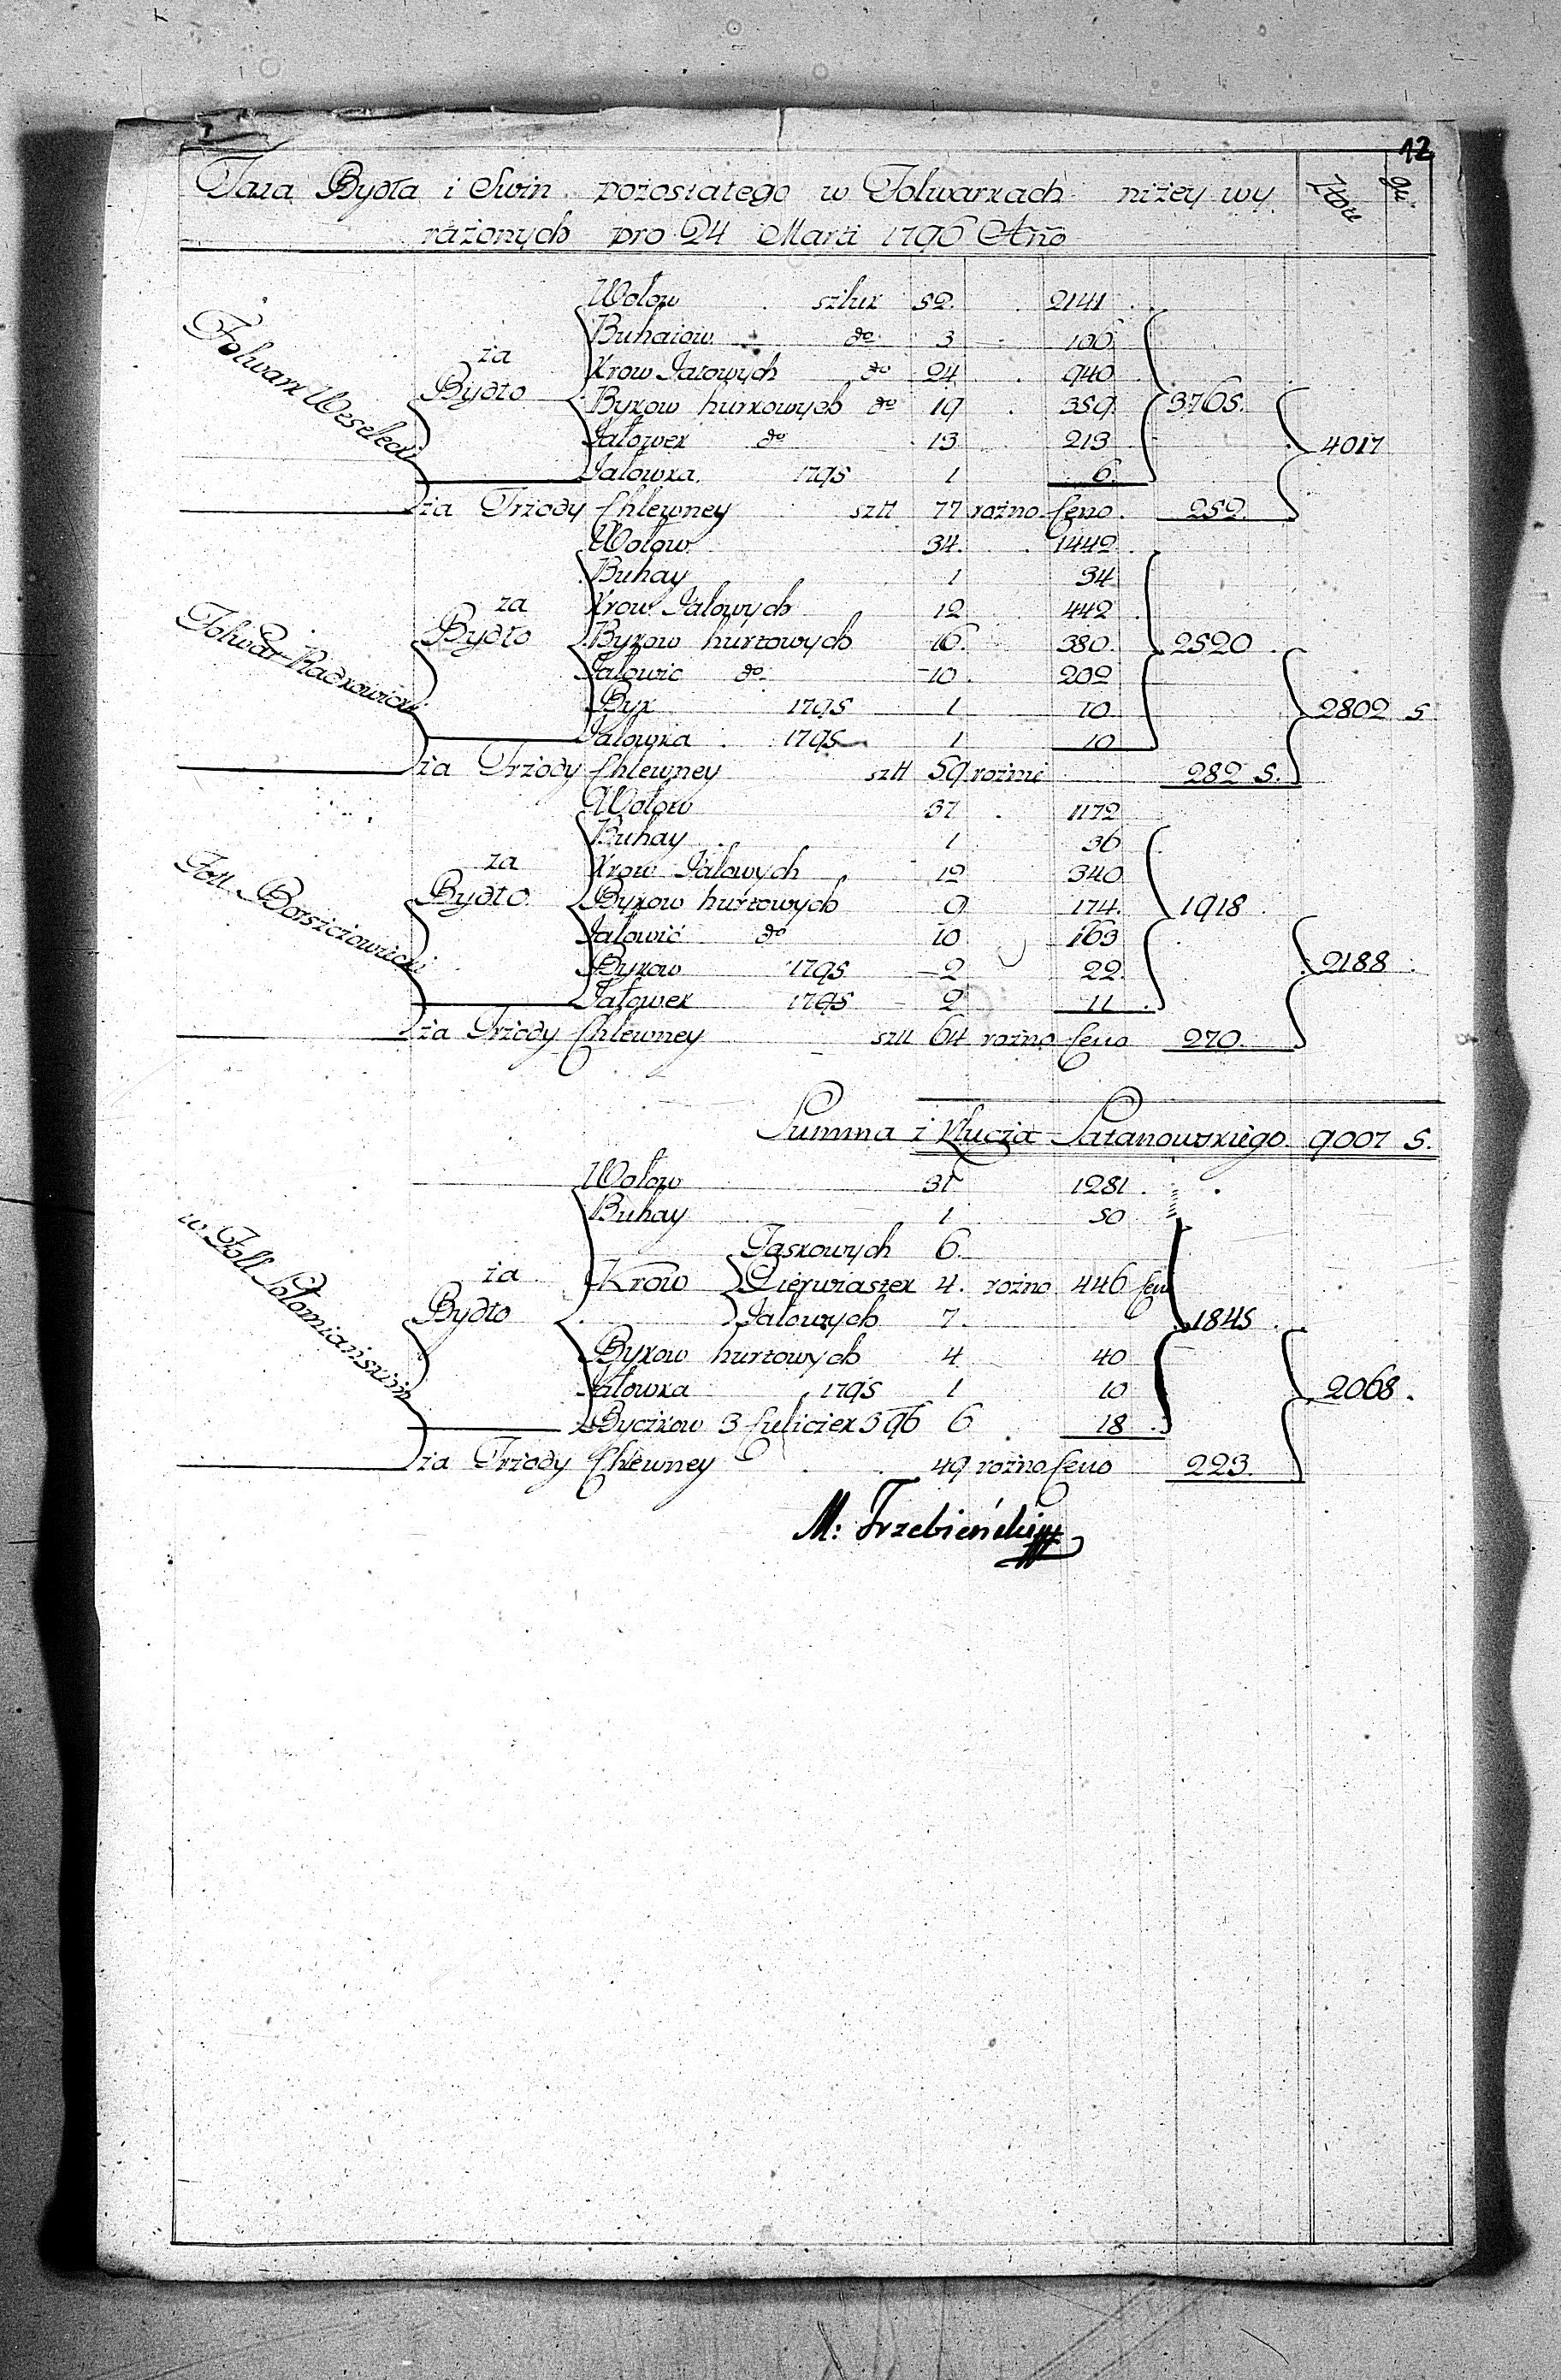 12
Taxa Bydła i Swin pozostałego w Folwarkach niżey wy
rażonych pro 24 Marti 1796 Año
Złote gr.
Folwark Weselecki
za Bydło
Wołow sztuk 52. 2141
Buhaiow do 3 106
Krow Jałowych do 24 940
Bykow hurtowych do 19 359
Jałowek do 13 213
Jałowka 1795 1 6
3765.
za Trzody Chlewney szt 77 rożno Ceno 252
4017
Folwar Radkowicki
za Bydło
Wołow 34. 1442
Buhay 1 34
Krow Jałowych 12 442
Bykow hurtowych 16. 380.
Jałowic do 10 202
Byk 1795 1 10
Jałowka 1795 1 10
2520
za Trzody Chlewney szt 59 rożni 282 5.
2802 5
Foll
za Bydło
Wołow 37 1172
Buhay 1 36
Krow Jałowych 12 340
Bykow hurtowych 9 174.
Jałowić do 10 163
Bykow 1795 2 22.
Jałowek 1795 2 11
1918
za Trzody Chlewney szt 64 rożno Ceno 270
2188
Summa z Klucza Satanowskiego 9007 5.
w Foll Sołomiańskim
za Bydło
Wołow 31 1281
Buhay 1 50
Krow
Jaskowych 6
Pierwiastek 4. rożno 446 Cen
Jałowych 7
Bykow hurtowych 4 40
Jałowka 1795 1 10
Byczkow 3 Cieliczek 3 96 6 18
1845
za Trzody Chlewney 49 rożno Ceno 223.
2068.
M: Trzebieński